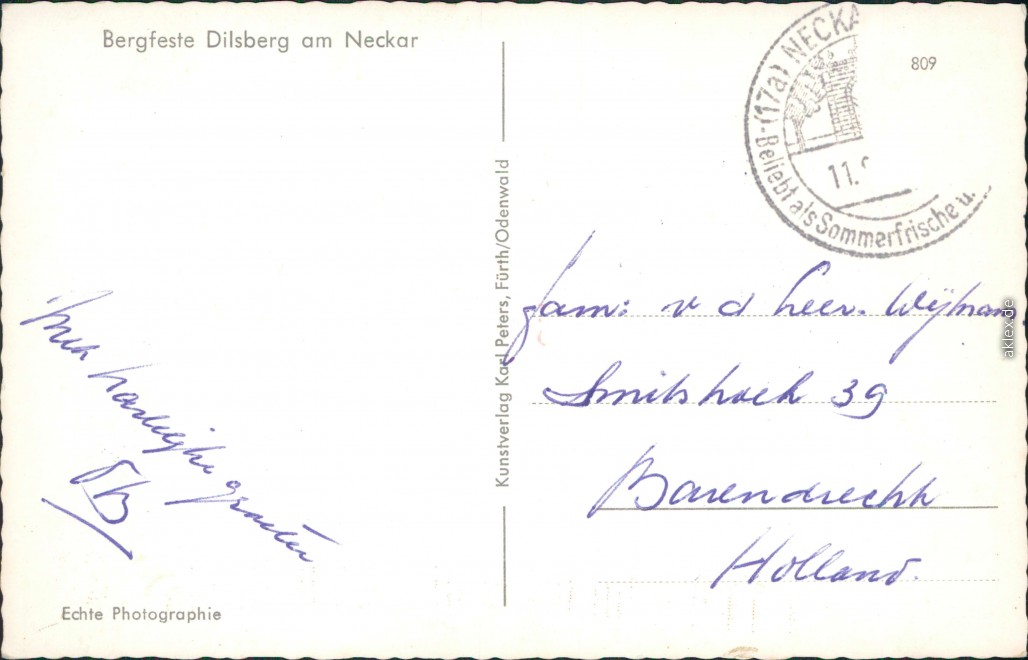 Bergfeste Dilsberg am Neckar
(17a) NECKA
11.
Beliebt als Sommerfrische u.
809
Kunstverlag Karl Peters, Fürth/Odenwald
Fam: v d Heer. Wijman
Smitshoek 39
Barendrecht
Holland.
hartelijke groeten
Echte Photographie
aklex.de